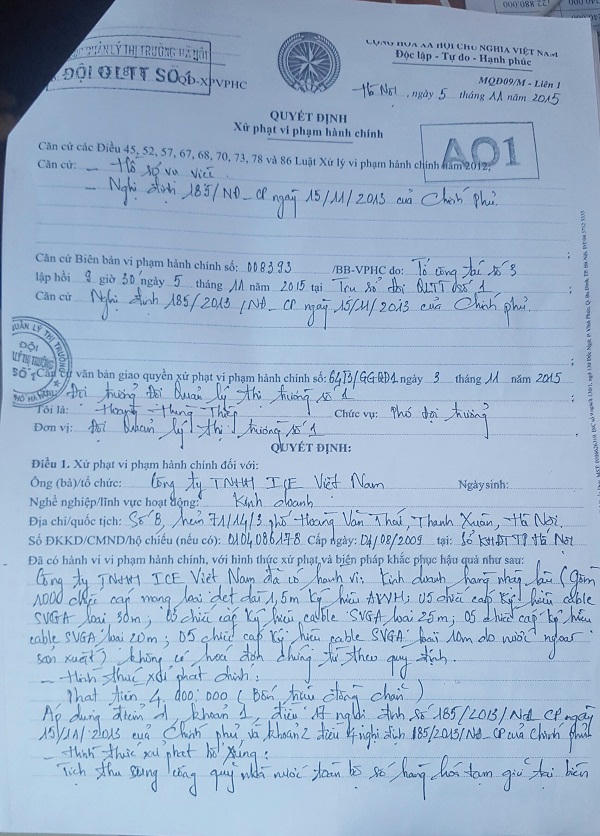 CỤC QUẢN LÝ THỊ TRƯỜNG HÀ NỘI
ĐỘI QLTT SỐ 1
/QĐ-XPVPHC
CỘNG HÒA XÃ HỘI CHỦ NGHĨA VIỆT NAM
Độc lập - Tự do - Hạnh phúc
MQĐ09/M - Liên 1
Hà Nội, ngày 5 tháng 11 năm 2015
QUYẾT ĐỊNH
Xử phạt vi phạm hành chính
A01
Căn cứ các Điều 45, 52, 57, 67, 68, 70, 73, 78 và 86 Luật Xử lý vi phạm hành chính năm 2012;
Căn cứ: - Hồ sơ vụ việc
- Nghị định 185/NĐ-CP ngày 15/11/2013 của Chính phủ.
Căn cứ Biên bản vi phạm hành chính số: 008393 /BB-VPHC do: Tổ công tác số 3
lập hồi 9 giờ 30 ngày 5 tháng 11 năm 2015 tại Trụ sở đội QLTT số 1
Căn cứ Nghị định 185/2013/NĐ-CP ngày 15/11/2013 của Chính phủ.
QUẢN LÝ THỊ TRƯỜNG
ĐỘI
SỐ 1
Căn cứ văn bản giao quyền xử phạt vi phạm hành chính số: ngày 3 tháng 11 năm 2015
Đội trưởng Đội Quản lý thị trường số 1
Tôi là: Hoàng Chức vụ: Phó đội trưởng
Đơn vị: Đội Quản lý thị trường số 1
QUYẾT ĐỊNH:
Điều 1. Xử phạt vi phạm hành chính đối với:
Ông (bà)/tổ chức: Công ty TNHH ICE Việt Nam Ngày sinh:
Nghề nghiệp/lĩnh vực hoạt động: Kinh doanh
Địa chỉ/quốc tịch: Số 8, hẻm 71/14/3 phố Hoàng Văn Thái, Thanh Xuân, Hà Nội.
Số ĐKKD/CMND/hộ chiếu (nếu có): 0104086178 Cấp ngày: 04/08/2009 tại: Sở KHĐT TP Hà Nội
Đã có hành vi vi phạm hành chính, với hình thức xử phạt và biện pháp khắc phục hậu quả như sau:
Công ty TNHH ICE Việt Nam đã có hành vi: Kinh doanh hàng nhập lậu (gồm
1000 chiếc cáp mạng loại dẹt dài 1,5m ký hiệu; 05 chiếc cáp ký hiệu cable
SVGA loại 30m; 05 chiếc cáp ký hiệu cable SVGA loại 25m; 05 chiếc cáp ký hiệu
cable SVGA loại 20m; 05 chiếc cáp ký hiệu cable SVGA loại 10m do nước ngoài
sản xuất) không có hoá đơn chứng từ theo quy định.
- Hình thức xử phạt chính:
Phạt tiền 4,000,000 (Bốn triệu đồng chẵn)
Áp dụng điểm, khoản 1, điều 17 nghị định số 185/2013/NĐ-CP ngày
15/11/2013 của Chính phủ và khoản 2 điều 4 nghị định 185/2013/NĐ-CP của Chính phủ
- Hình thức xử phạt bổ sung:
Tịch thu sung công quỹ nhà nước toàn bộ số hàng hoá tạm giữ tại biên